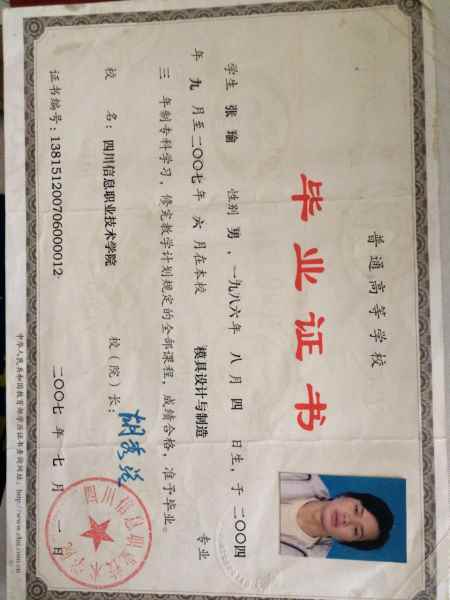 普通高等学校
毕业证书
学生 张瑜 性别 男，一九八六年 八 月 四 日生，于 二〇〇四
年 九 月至二〇〇七年 六 月在本校 模具设计与制造 专业
三 年制专科学习，修完教学计划规定的全部课程，成绩合格，准予毕业。
校 名：四川信息职业技术学院 校（院）长：
证书编号：138151200706000012 二〇〇七 年 七 月 一 日
四川信息职业技术学院
中华人民共和国教育部学历证书查询网址：http://www.chsi.com.cn